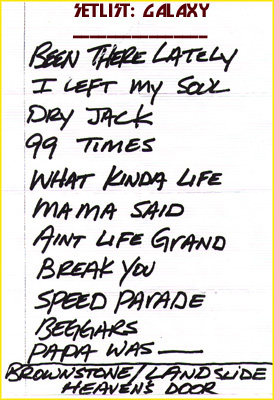 SETLIST: GALAXY
BEEN THERE LATELY
I LEFT MY SOUL
DRY JACK
99 TIMES
WHAT KINDA LIFE
MAMA SAID
AINT LIFE GRAND
BREAK YOU
SPEED PARADE
BEGGARS
PAPA WAS —
BROWNSTONE/LANDSLIDE
HEAVENS DOOR